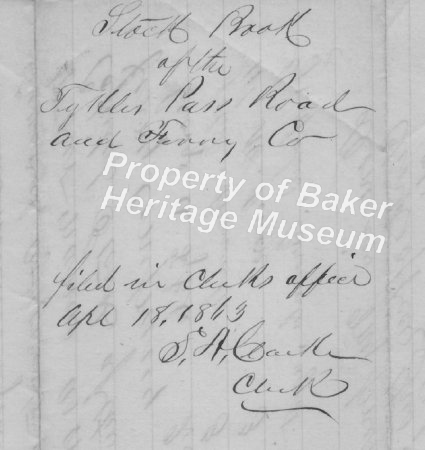 Stock Book
of the
Pass Road
and Ferry Co
Property of Baker
Heritage Museum
filed in Clerks office
Apl 18, 1863
S. A.
Clerk